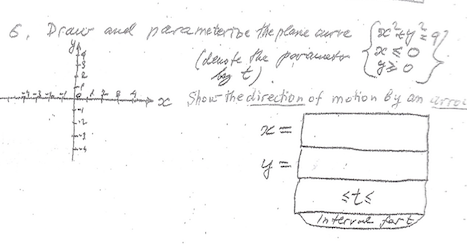 6. Draw and parameterize the plane curve { x²+y²=9
(denote the parameter x ≤ 0
by t). y ≥ 0 }
y
4
3
2
1
-4 -3 -2 -1 0 1 2 3 4 x
-1
-2
-3
-4
Show the direction of motion by an arrow
x =
y =
≤ t ≤
Interval for t